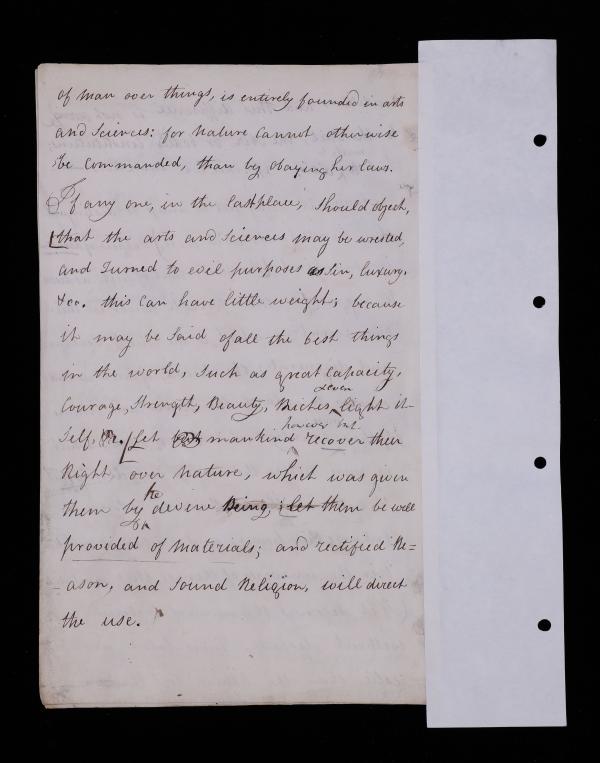 of man over things, is entirely founded in arts
and Sciences: for nature cannot otherwise
be commanded, than by obaying her laws.
If any one, in the last place, should object,
that the arts and Sciences may be wrested,
and Turned to evil purposes as Sin, luxury.
&co. this can have little weight; because
it may be Said of all the best things
in the world, Such as great Capacity,
Courage, Strength, Beauty, Riches, light it-
&even
Self, &c. Let but mankind recover their
however but
Right over nature, which was given
them by devine Being; let them be well
the
provided of materials; and rectified Re=
ason, and Sound Religion, will direct
the use.